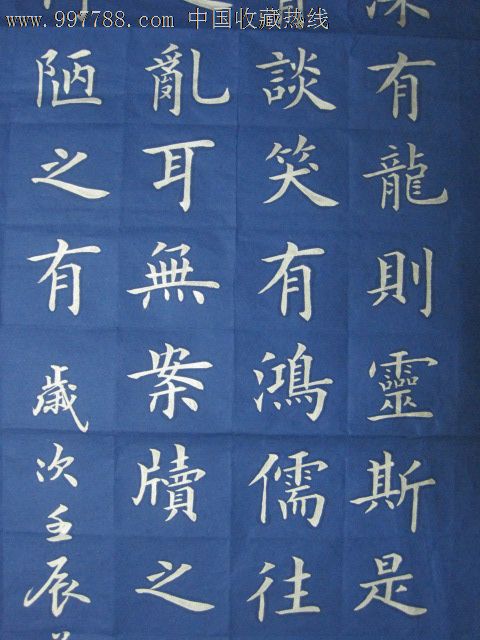 www.997788.com 中国收藏热线
有龍則靈斯是
談笑有鴻儒往
亂耳無案牘之
陋之有
歲次壬辰